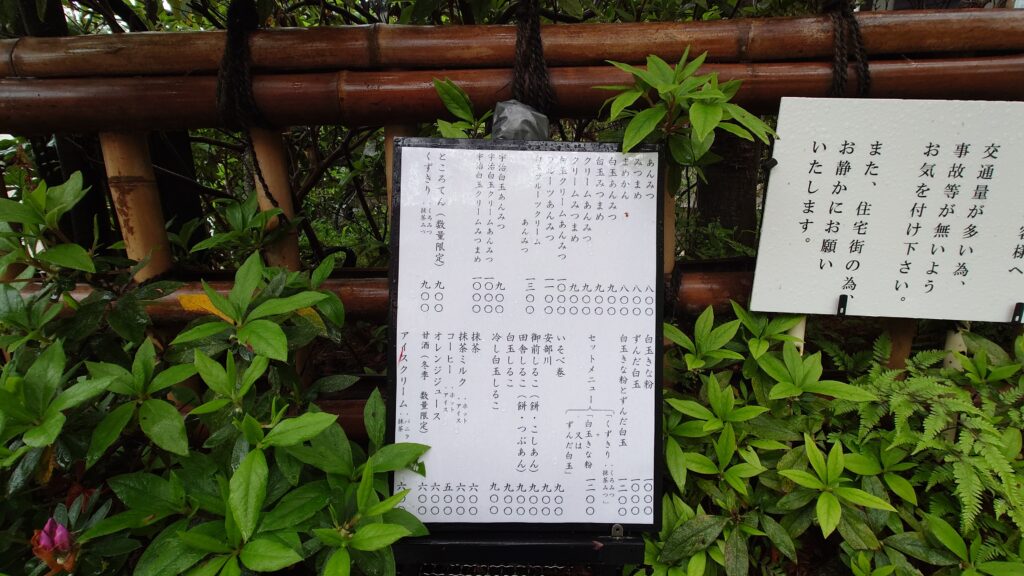 客様へ
交通量が多い為、
事故等が無いよう
お気を付け下さい。
また、住宅街の為、
お静かにお願い
いたします。
あんみつ 八〇〇
みつまめ 八〇〇
まめかん 八〇〇
白玉あんみつ 九〇〇
白玉みつまめ 九〇〇
クリームあんみつ 九〇〇
クリームみつまめ 九〇〇
白玉クリームあんみつ 一〇〇〇
フルーツあんみつ 一一〇〇
白玉フルーツクリーム
あんみつ 一三〇〇
宇治白玉あんみつ 九〇〇
宇治白玉クリームあんみつ 一〇〇〇
宇治白玉クリームみつまめ 一〇〇〇
ところてん（数量限定） 九〇〇
くずきり・くろみつ・抹茶みつ 九〇〇
白玉きな粉 一〇〇〇
ずんだ白玉 一〇〇〇
白玉きな粉とずんだ白玉 一二〇〇
セットメニュー
「くずきり・くろみつ・抹茶みつ
＋
白玉きな粉 一三〇〇
又は
ずんだ白玉」
いそべ巻 九〇〇
安部川 九〇〇
御前しるこ（餅・こしあん） 九〇〇
田舎しるこ（餅・つぶあん） 九〇〇
白玉しるこ 九〇〇
冷し白玉しるこ 九〇〇
抹茶 六〇〇
抹茶ミルク・ホット・アイス 六〇〇
コーヒー・ホット・アイス 五〇〇
オレンジジュース 六〇〇
甘酒（冬季 数量限定） 六〇〇
アイスクリーム・バニラ・抹茶 六